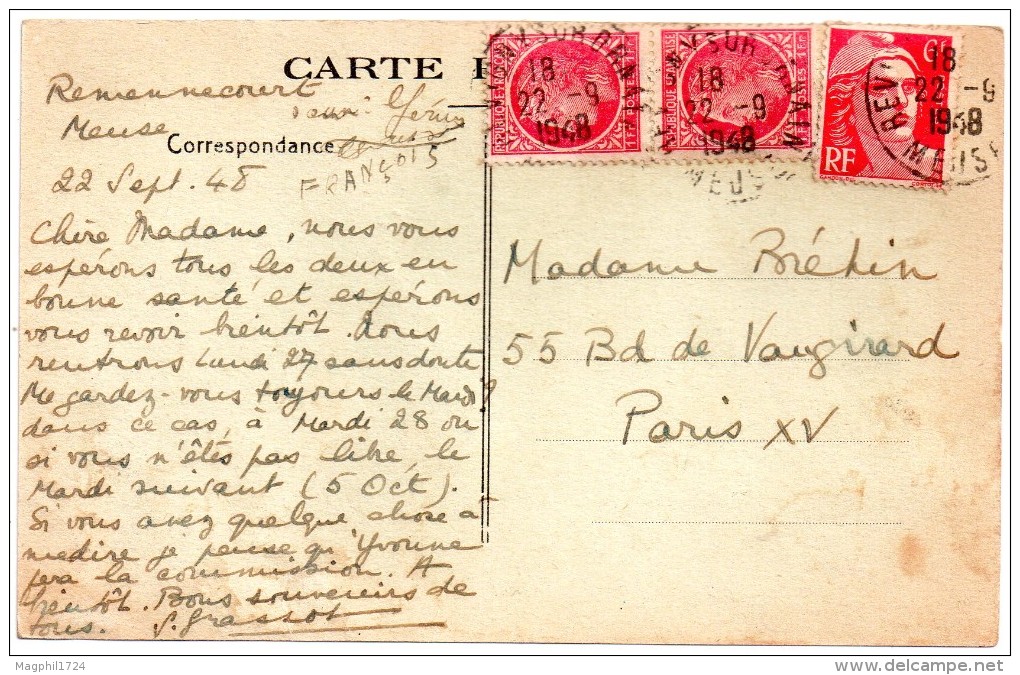 CARTE P
Remennecourt
Meuse
Correspondance
FRANÇOIS
22 Sept. 48
Chère Madame, nous vous
espérons tous les deux en
bonne santé et espérons
vous revoir bientôt. Nous
rentrons Lundi 27 sans doute
Me gardez-vous toujours le Mardi ?
dans ce cas, à Mardi 28 ou
si vous n'êtes pas libre, le
Mardi suivant (5 Oct).
Si vous avez quelque chose à
me dire je pense qu'Yvonne
fera la commission. A
bientôt. Bons souvenirs de
tous. S. Grassot
Madame Bréhin
55 Bd de Vaugirard
Paris XV
18
22 -9
1948
18
22 -9
1948
MEUSE
18
22 -9
1948
REV
MEUSE
RF
Magphil1724
www.delcampe.net